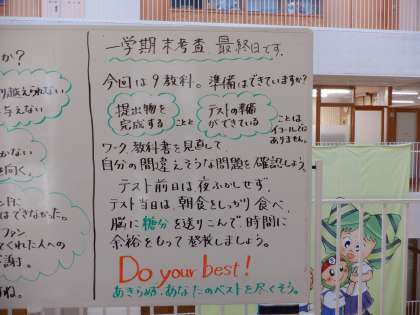 か?
り越えられない
与えない
かない
を向く。
ントに
はできなかった。
ファン
てくれた人への
謝。
すね。
一学期末考査 最終日です。
今回は9教科。準備はできていますか?
提出物を
完成する
ことと
テストの準備
ができている
ことは
イコールでは
ありません。
ワーク、教科書を見直して、
自分の間違えそうな問題を確認しよう。
テスト前日は夜ふかしせず、
テスト当日は、朝食をしっかり食べ、
脳に糖分を送りこんで、時間に
余裕をもって登校しましょう。
Do your best!
あきらめず、あなたのベストを尽くそう。